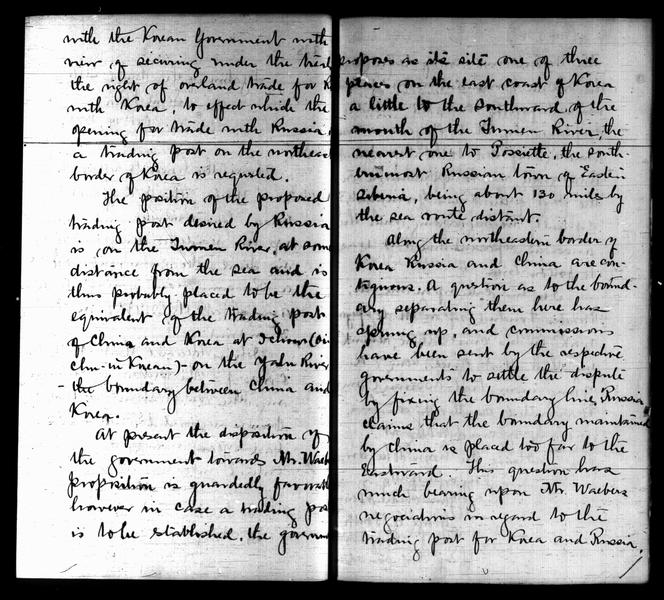 with the Korean Government with
view of securing under the
the right of overland trade for
with Korea, to effect which the
opening for trade with Russia,
a trading post on the
border of Korea is requested.
The position of the proposed
trading post desired by Russia
is on the Tumen River, at some
distance from the sea and is
thus probably placed to be the
equivalent of the trading post
of China and Korea at
in Korean) - on the Yalu River
- the boundary between China and
Korea.
At present the disposition of
the government towards Mr.
proposition is guardedly
however in case a trading
is to be established, the
proposes as its site one of three
places on the east coast of Korea
a little to the southward of the
mouth of the Tumen River, the
nearest one to Possiette, the south-
ernmost Russian town of Eastern
Siberia, being about 130 miles by
the sea route distant.
Along the northeastern border of
Korea Russia and China are con-
tiguous. A question as to the bound-
ary separating them here has
sprung up, and commissions
have been sent by the respective
governments to settle the dispute
by fixing the boundary line, Russia
claims that the boundary maintained
by China is placed too far to the
Eastward. This question has
much bearing upon Mr. Waebers
negociations in regard to the
trading post for Korea and Russia,